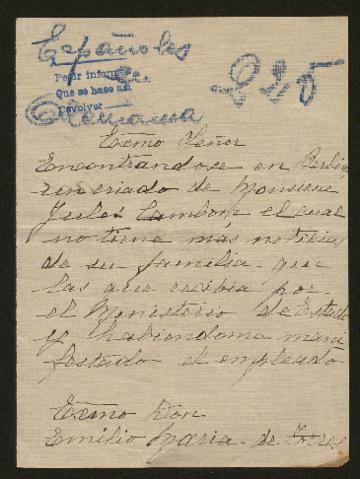 Españoles
en
Alemania
Pedir informes
Que se hace así
Devolver
Excmo Señor
Encontrándose en Berlin
un criado de Monsieur
Jules Cambon el cual
no tiene más noticias
de su familia que
las que recibia por
el Ministerio de Estado
y habiendome mani
festado el empleado
Excmo Don
Emilio Maria de Torres